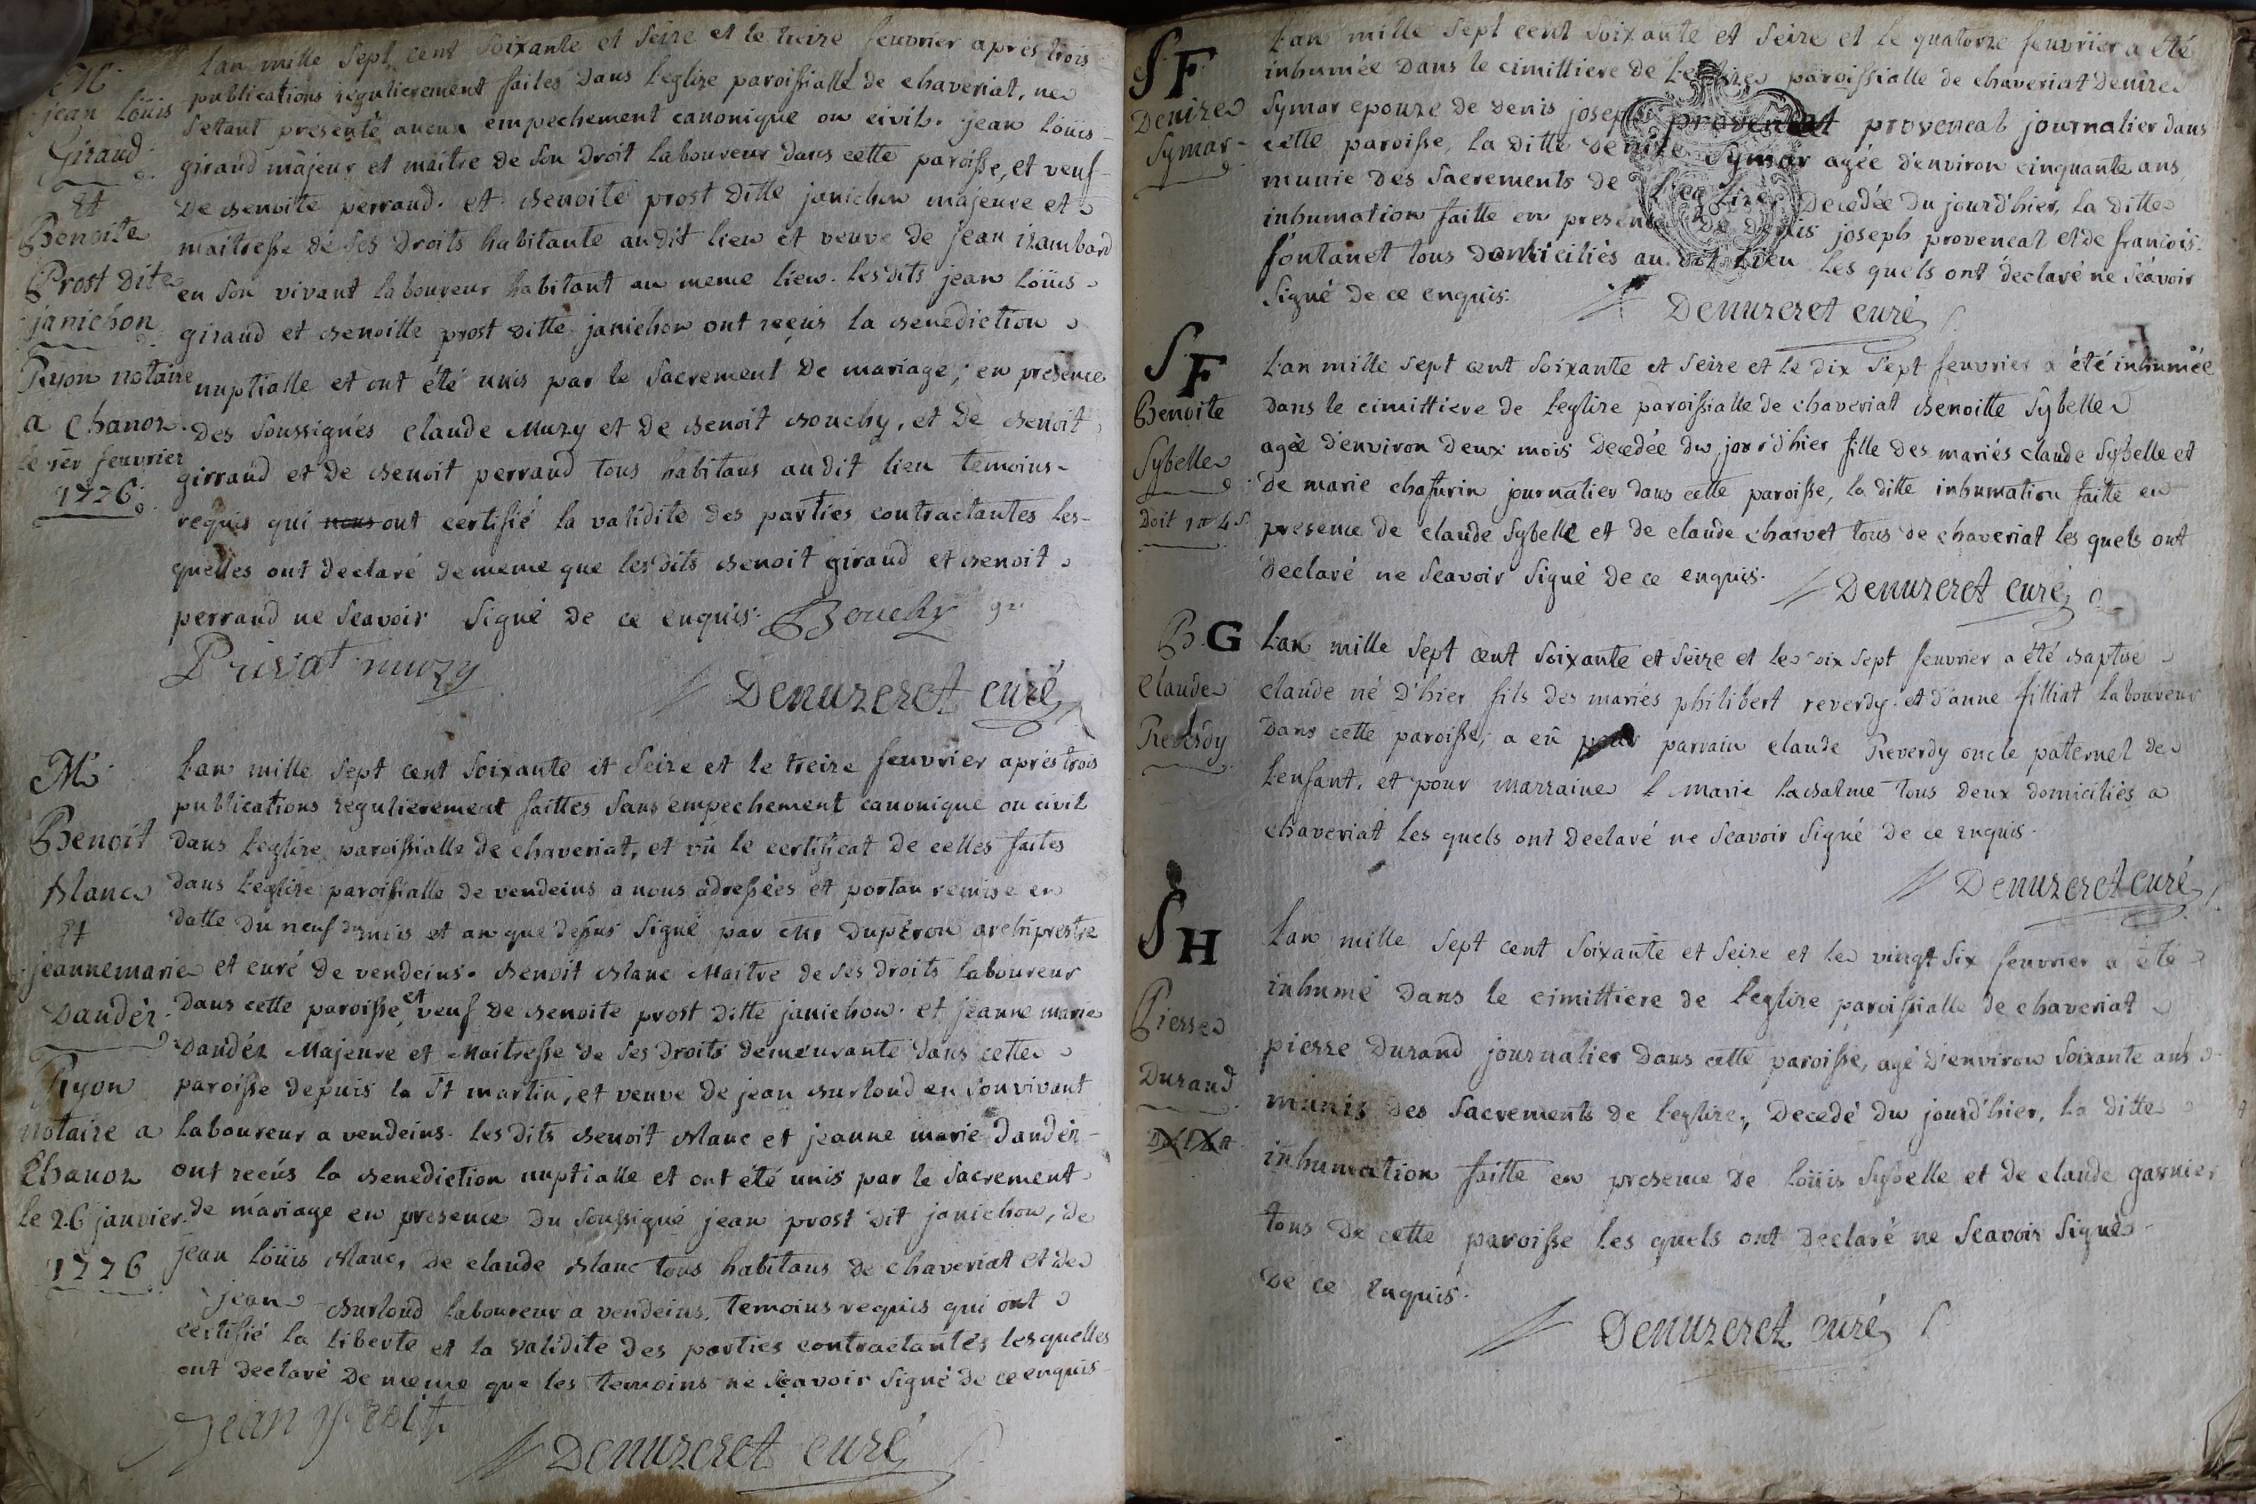 M.
jean loüis
Giraud
Et
Benoite
Prost dite
janichon
Ryon notaire
a Chanoz
le 1er feuvrier
1776
Lan mille Sept cent Soixante et Seize et le treize feuvrier apres trois
publications régulierement faites dans l'eglize paroissialle de chaveriat, ne
S'etant presenté aucun empechement canonique ou civil. jean loüis
giraud majeur et maitre de Son Droit laboureur dans cette paroisse, et veuf
de Benoite perraud. et Benoite prost ditte janichon majeure et
maitresse de Ses Droits habitante audit lieu et veuve de jean izambard
en Son vivant laboureur habitant au meme lieu. lesdits jean loüis
giraud et Benoitte prost ditte janichon ont reçus la Benediction
nuptialle et ont été unis par le Sacrement de mariage; en presence
des Soussignés claude Muzy et de Benoit Bouchy, et de Benoit
girraud et de Benoit perraud tous habitans audit lieu temoins
requis qui nous ont certifié la validité des parties contractantes les-
quelles ont declaré de meme que lesdits Benoit giraud et Benoit
perraud ne Seavoir Signé de ce enquis. Bouchy
Privat muzy
Demurezet curé
M.
Benoit
Blanc
Et
jeannemarie
Dandéz
Ryon
notaire a
Chanoz
le 26 janvier
1776
Lan mille Sept cent Soixante et Seize et le treize feuvrier aprés trois
publications regulierement faittes Sans empechement canonique ou civil
dans l'eglize paroissialle de chaveriat, et vû le certificat de celles faites
dans l'eglize paroissialle de vendeins a nous adressées et portan remise en
datte du neuf du mois et an que dessus Signé par Mr Dupéron archiprestre
et curé de vendeins. Benoit Blanc Maitre de ses droits laboureur
dans cette paroisse, et veuf de Benoite prost ditte janichon. et jeanne marie
Dandéz Majeure et Maitresse de Ses Droits demeurante dans cette
paroisse depuis la St martin, et veuve de jean Burloud en Son vivant
laboureur a vendeins. les dits Benoit Blanc et jeanne marie Dandéz
ont recús la Benediction nuptialle et ont été unis par le Sacrement
de máriage en presence du Soussigné jean prost dit janichon, de
jean loüis Blanc, de claude Blanc tous habitans de chaveriat et de
jean Burloud laboureur a vendeins. temoins requis qui ont
certifié la liberté et la validité des parties contractantes lesquelles
ont declaré de meme que les temoins ne Seavoir Signé de ce enquis
Jean
Demurezet curé
S. F
Denize
Symar
Lan mille Sept cent Soixante et Seize et le quatorze feuvrier a été
inhumée Dans le cimittiere de l'eglize paroissialle de chaveriat Denize
Symar epouze de Denis joseph provencal provencal journalier dans
cette paroisse, la ditte denize Symar agée d'environ cinquante ans
munie des Sacrements de l'eglize, Decedée du jourd'hier, la ditte
inhumation faitte en presence de Denis joseph provencal et de francois
fontanet tous domiciliés au dit lieu les quels ont declaré ne Scavoir
Signé de ce enquis.
Demurezet curé
S. F
Benoite
Sybelle
Doit 1 a 4 s
Lan mille Sept cent Soixante et Seize et le dix Sept feuvrier a été inhumée
Dans le cimittiere de l'eglize paroissialle de chaveriat Benoitte Sybelle
agée d'environ Deux mois Decedée du jourd'hier fille des mariés claude Sybelle et
de marie chaffurin journalier dans cette paroisse, la ditte inhumation faitte en
presence de claude Sybelle et de claude charvet tous de chaveriat les quels ont
Declaré ne Seavoir Signé de ce enquis.
Demurezet curé
B. G
Claude
Reverdy
Lan mille Sept cent Soixante et Seize et le dix Sept feuvrier a été Baptisé
claude né D'hier fils des mariés philibert reverdy et d'anne filliat laboureur
Dans cette paroisse, a eû pour parrain claude Reverdy oncle paternel de
l'enfant. et pour marraine marie laBalme tous deux domiciliés a
chaveriat les quels ont Declaré ne Seavoir Signé de ce enquis.
Demurezet curé
S H
Pierre
Durand
Lan mille Sept cent Soixante et Seize et le vingt Six feuvrier a été
inhumé dans le cimittiere de l'eglize paroissialle de chaveriat
pierre Durand journalier dans cette paroisse, agé d'environ Soixante ans
munis des Sacrements de l'eglize, Decedé du jourd'hier, la ditte
inhumation faitte en presence de loüis Sybelle et de claude garnier
tous de cette paroisse les quels ont declaré ne Seavoir Signé
de ce enquis.
Demurezet curé